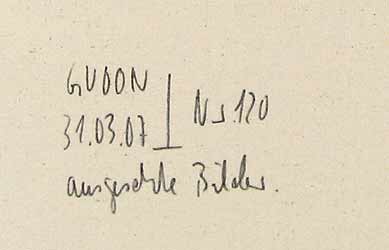 GVOON
31.03.07
Nr.120
ausgesetzte Bilder.